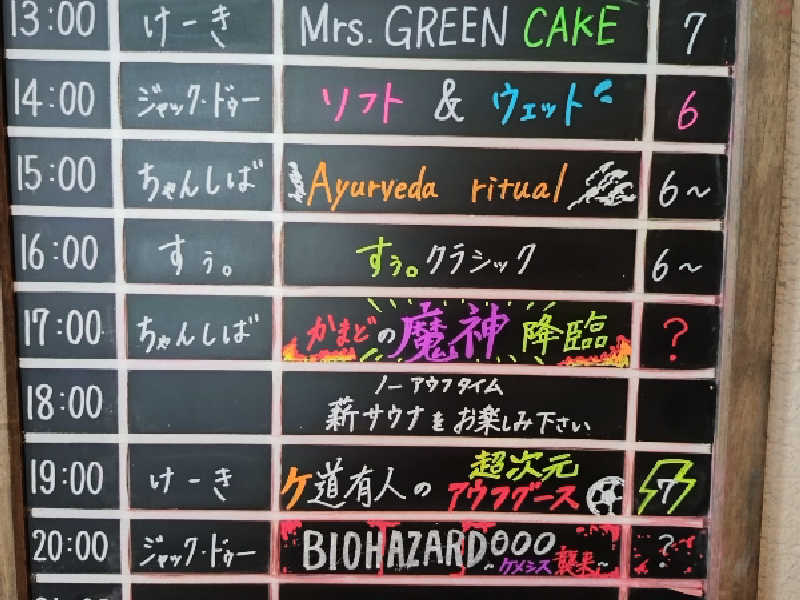 13:00 けーき Mrs. GREEN CAKE 7
14:00 ジャック・ドゥー ソフト & ウェット 6
15:00 ちゃんしば Ayurveda ritual 6~
16:00 すぅ。 すぅ。クラシック 6~
17:00 ちゃんしば かまどの魔神 降臨 ?
18:00 ノーアウフタイム
薪サウナをお楽しみ下さい
19:00 けーき ケ道有人の 超次元
アウフグース 7
20:00 ジャック・ドゥー BIOHAZARD000 ?
~ケメシス襲来~